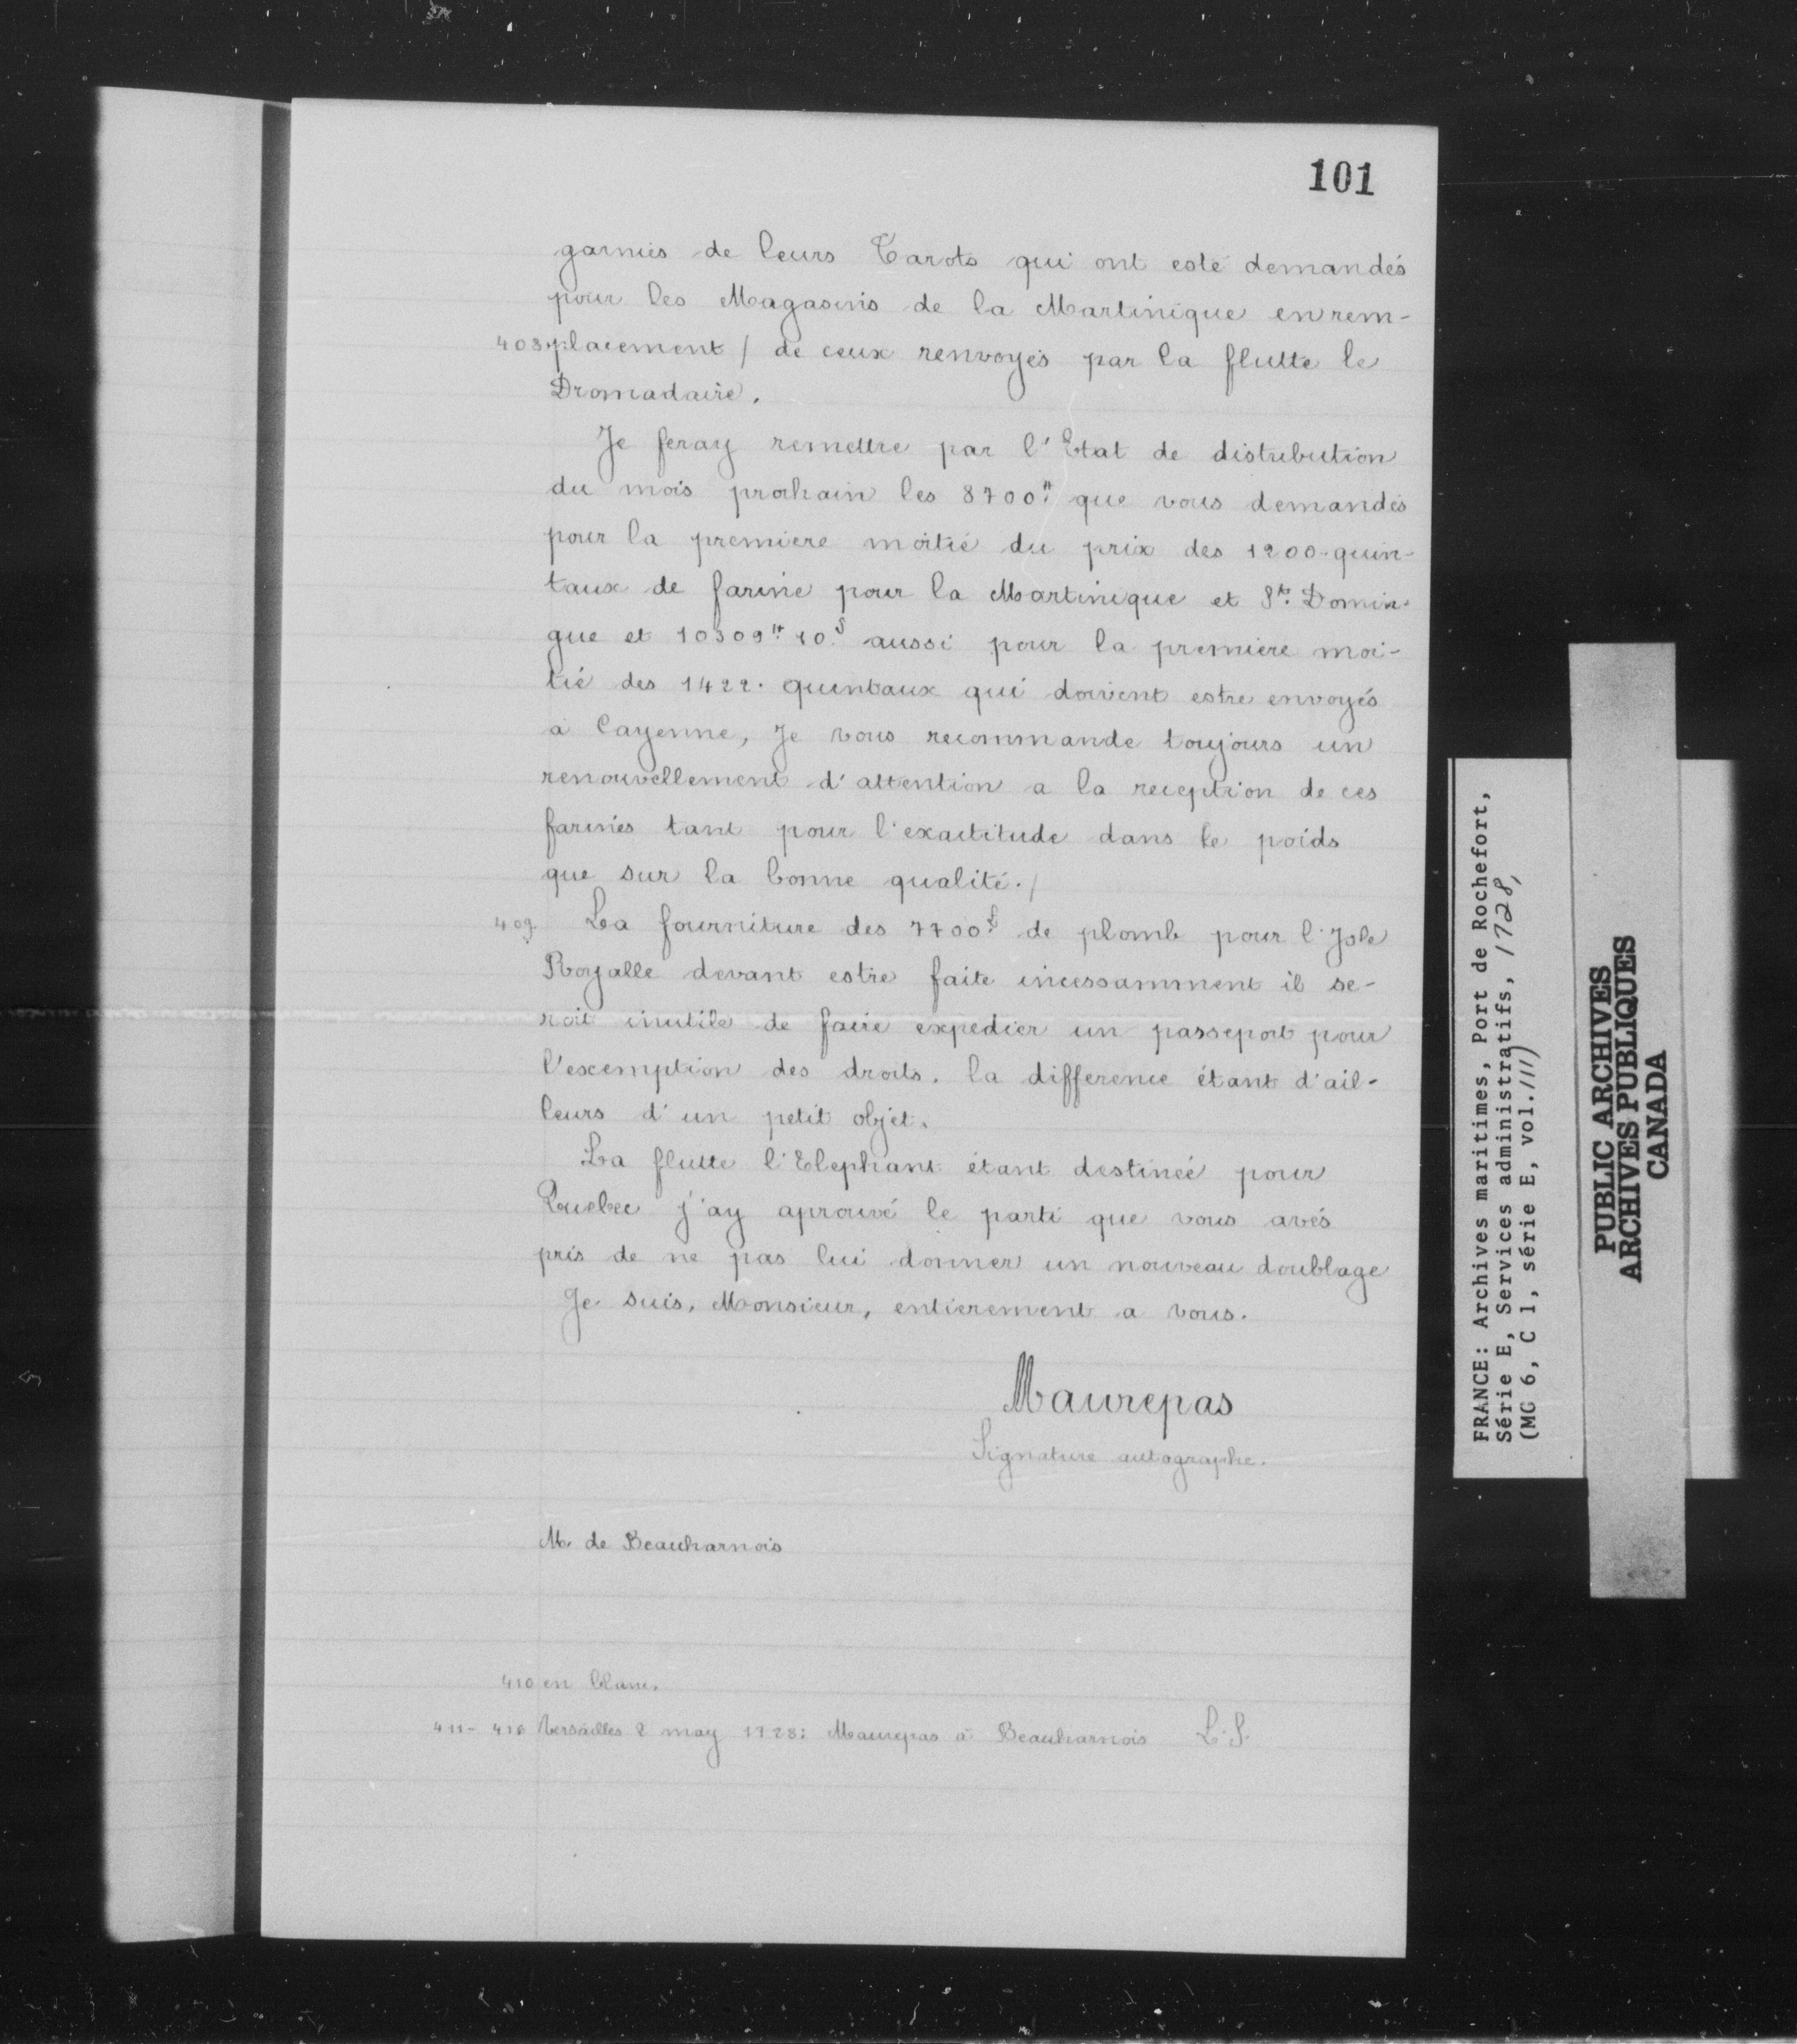 101
garnies de leurs Tarots qui ont esté demandés
pour les Magasins de la Martinique en rem-
408. placement / de ceux renvoyés par la flutte le
Dromadaire.
Je feray remettre par l'Etat de distribution
du mois prochain les 8700.# que vous demandés
pour la premiere moitié du prix des 1200. quin-
taux de farine pour la Martinique et St. Domin-
gue et 10309.# 10.s aussi pour la premiere moi-
tié des 1422. quintaux qui doivent estre envoyés
a Cayenne, Je vous recommande toujours un
renouvellement d'attention a la reception de ces
farines tant pour l'exactitude dans le poids
que sur la bonne qualité. /
409. La fourniture des 7700.L de plomb pour l'Jsle
Royalle devant estre faite incessamment il se-
roit inutile de faire expedier un passeport pour
l'exemption des droits. la difference étant d'ail-
leurs d'un petit objet.
La flutte l'Elephant étant destinée pour
Quebec j'ay aprouvé le parti que vous avés
pris de ne pas lui donner un nouveau doublage
Je suis, Monsieur, entierement a vous.
Maurepas
Signature autographe.
M. de Beauharnois
410 en blanc.
411- 416 Versailles 2 may 1728: Maurepas à Beauharnois L.S.
FRANCE: Archives maritimes, Port de Rochefort,
Série E, Services administratifs, 1728,
(MG 6, C 1, série E, vol. III)
PUBLIC ARCHIVES
ARCHIVES PUBLIQUES
CANADA